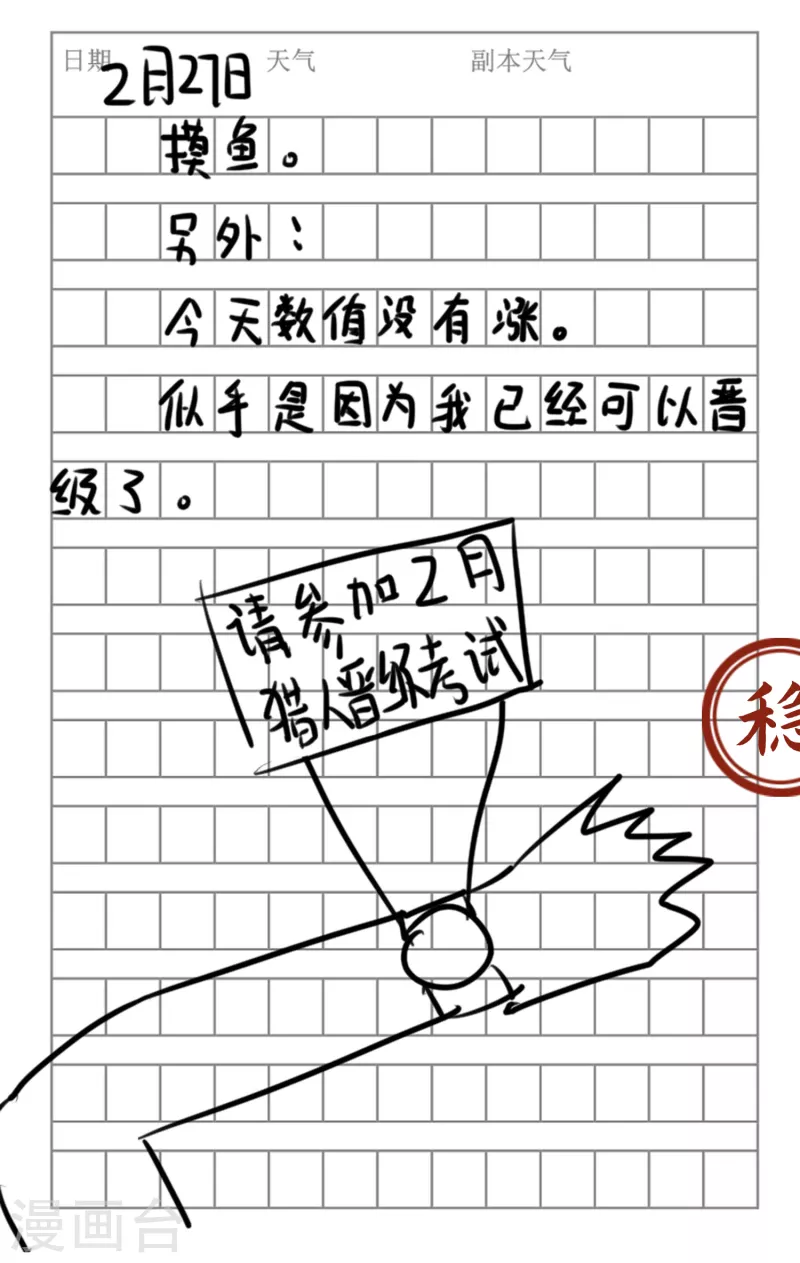 日期 2月27日 天气 副本天气
摸鱼。
另外：
今天数值没有涨。
似乎是因为我已经可以晋
级了。
请参加2月
猎人晋级考试
稳
漫画台